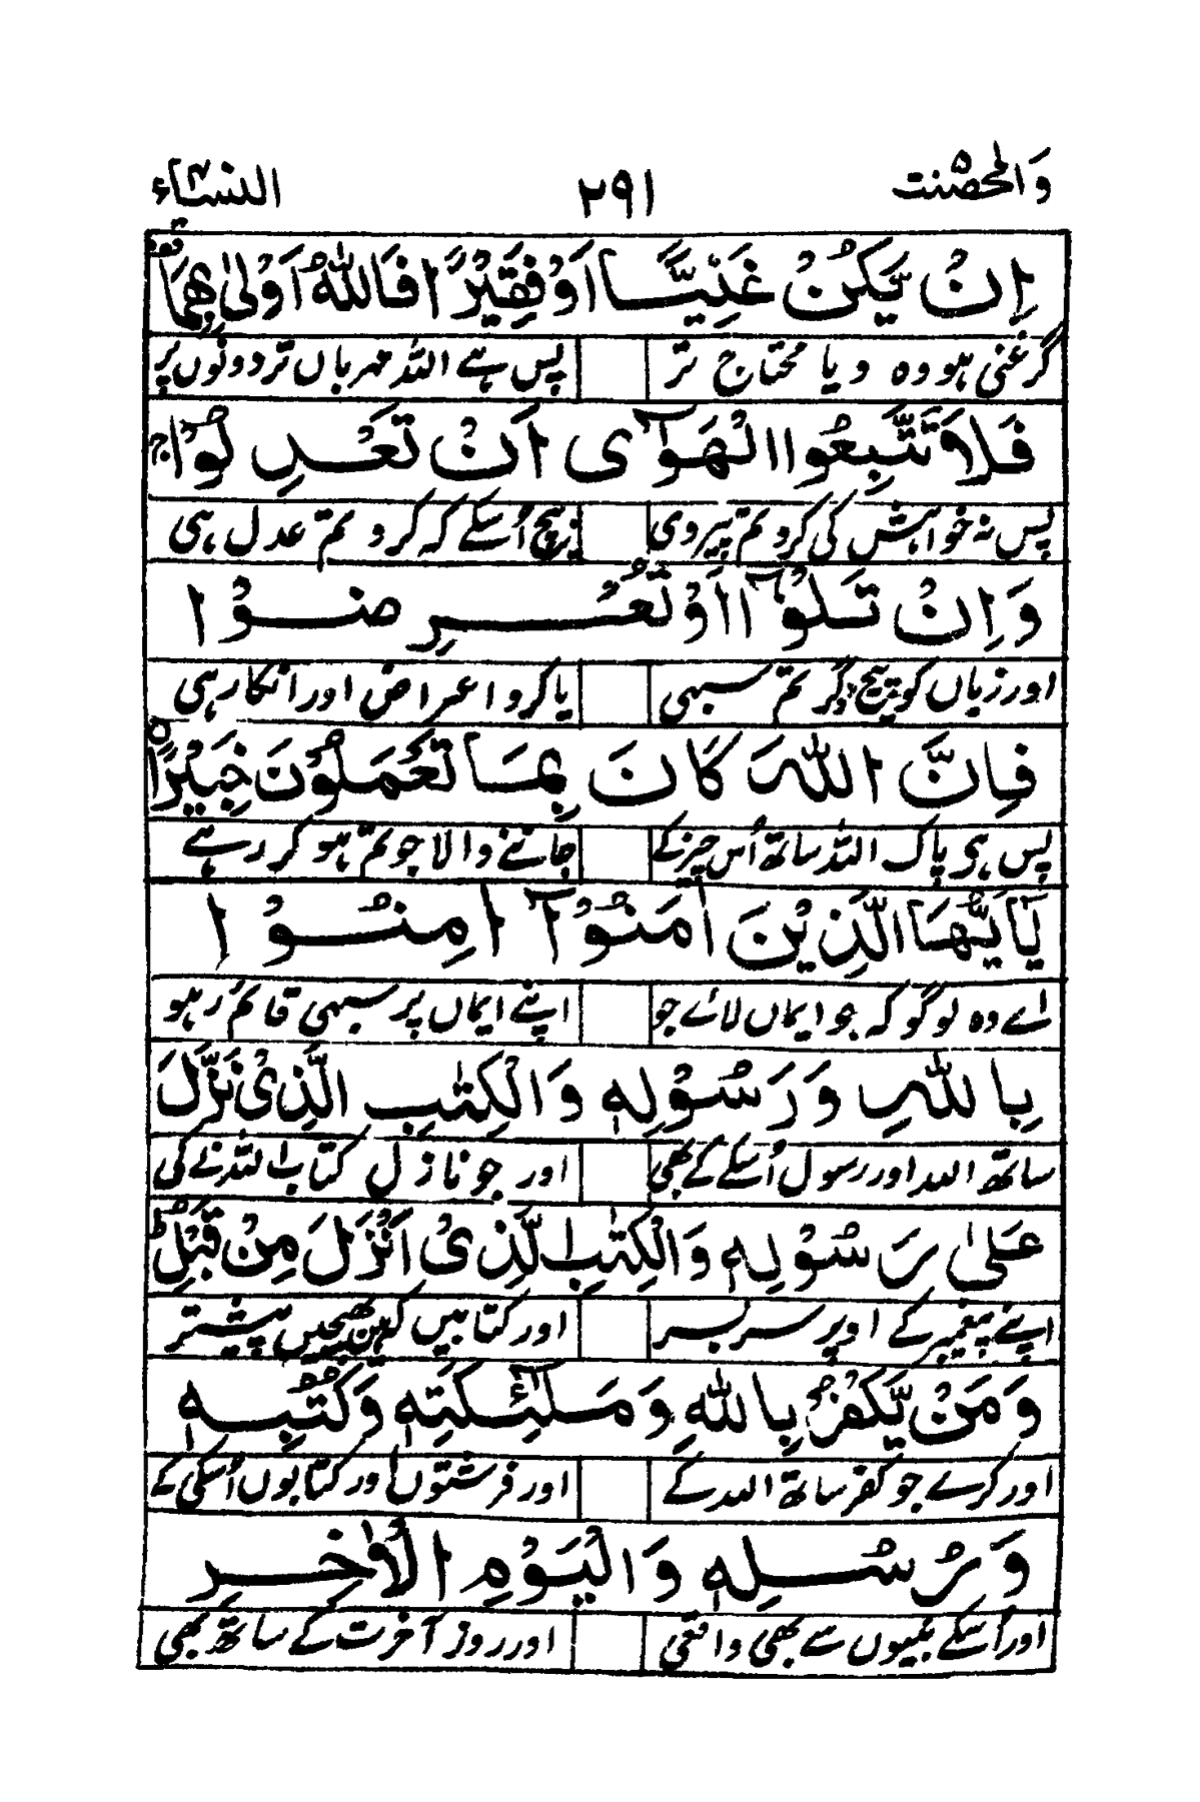 وَالمحصنت ۵ ۲۹۱ النسآء ۴
اِنْ يَّكُنْ غَنِيًّا اَوْ فَقِيْرًا فَاللّٰهُ اَوْلٰى بِهِمَا قف
گر غنی ہو وہ و یا محتاج تر پس ہے اللہ مہرباں تر دونوں پر
فَلَا تَتَّبِعُوا الْهَوٰٓى اَنْ تَعْدِلُوْا ج
پس نہ خواہش کی کرو تم پیروی بیچ اُسکے کہ کرو تم عدل ہی
وَاِنْ تَلْوٗٓا اَوْ تُعْرِضُوْا
اور زباں کو پیچ گر تم سبہی یا کرو اعراض اور انکار ہی
فَاِنَّ اللّٰهَ كَانَ بِمَا تَعْمَلُوْنَ خَبِيْرًا ○
پس ہی پاک اللہ ساتھ اُس چیز کے جاننے والا جو تم ہو کر رہے
يٰٓاَيُّهَا الَّذِيْنَ اٰمَنُوْٓا اٰمِنُوْا
اے وہ لوگو کہ جو ایماں لائے جو اپنے ایماں پر سبہی قائم رہو
بِاللّٰهِ وَرَسُوْلِهٖ وَالْكِتٰبِ الَّذِىْ نَزَّلَ
ساتھ اللہ اور رسول اُسکے کے بھی اور جو نازل کتاب اللہ نے کی
عَلٰى رَسُوْلِهٖ وَالْكِتٰبِ الَّذِىْٓ اَنْزَلَ مِنْ قَبْلُ ط
اپنے پیغمبر کے اوپر سر بسر اور کتابیں کہ ہیں بھیجیں پیشتر
وَمَنْ يَّكْفُرْ بِاللّٰهِ وَمَلٰٓئِكَتِهٖ وَكُتُبِهٖ
اور کرے جو کفر ساتھ اللہ کے اور فرشتوں اور کتابوں اُسکی کے
وَرُسُلِهٖ وَالْيَوْمِ الْاٰخِرِ
اور اُسکے نبیوں سے بھی واقعی اور روز آخرت کے ساتھ بھی